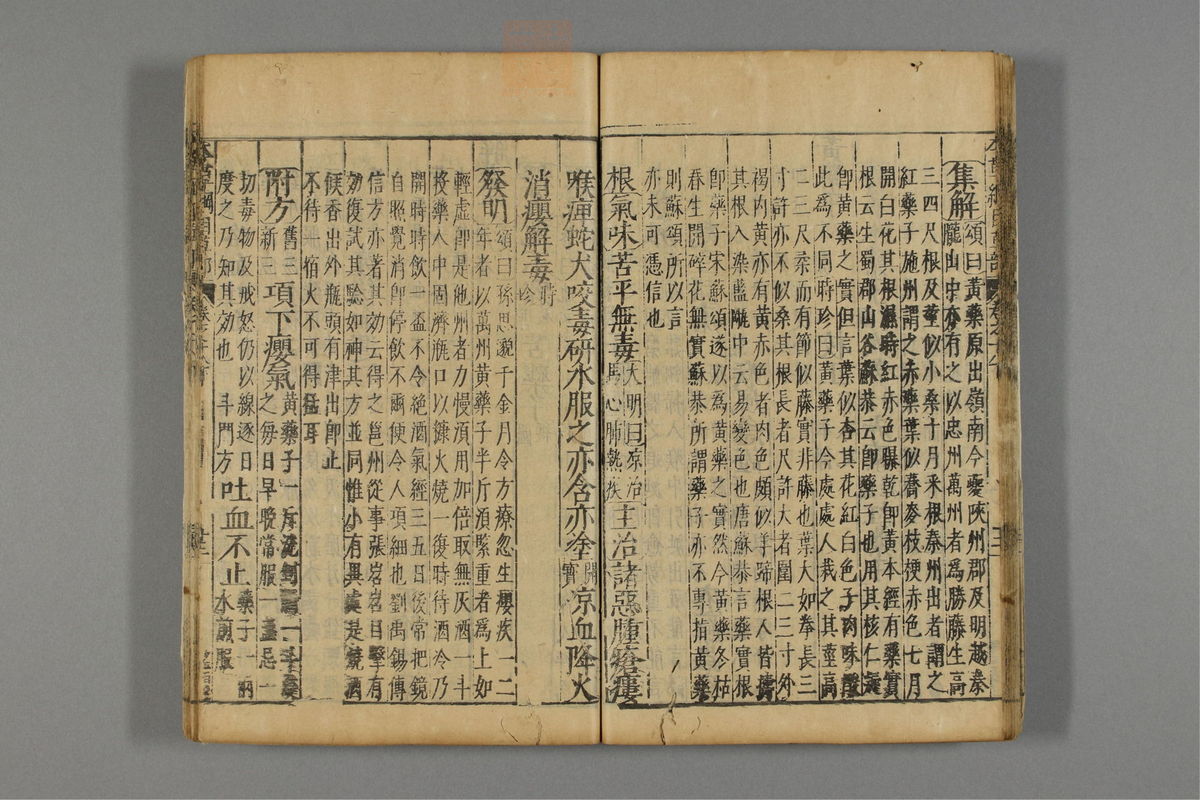 集解頌曰黃藥原出嶺南今夔陝州郡及明越秦
隴山中亦有之以忠州萬州者爲勝藤生高
三四尺根及莖似小桑十月采根秦州出者謂之
紅藥子施州謂之赤藥葉似蕎麥枝梗赤色七月
開白花其根濕時紅赤色曝乾卽黃本經有藥實
根云生蜀郡山谷蘇恭云卽藥子也用其核仁
卽黃藥之實但言葉似杏其花紅白色子肉味
此爲不同時珍曰黃藥子今處處人栽之其莖高
二三尺柔而有節似藤實非藤也葉大如拳長三
寸許亦不似桑其根長者尺許大者圍二三寸外
褐內黃亦有黃赤色者肉色頗似羊蹄根人皆擣
其根入染藍瓼中云易變色也唐蘇恭言藥實根
卽藥子宋蘇頌遂以爲黃藥之實然今黃藥冬枯
春生開碎花無實蘇恭所謂藥子亦不專指黃藥
則蘇頌所以言
亦未可憑信也
根氣味苦平無毒大明曰凉治馬心肺熱疾主治諸惡腫瘡瘻
喉痺蛇犬咬毒研水服之亦含亦塗開寶凉血降火
消癭解毒時珍
發明頌曰孫思邈千金月令方療忽生癭疾一二
年者以萬州黃藥子半斤須緊重者爲上如
輕虛卽是他州者力慢須用加倍取無灰酒一斗
投藥入中固濟瓶口以糠火燒一復時待酒冷乃
開時時飲一盃不令絕酒氣經三五日後常把鏡
自照覺消卽停飲不爾便令人項細也劉禹錫傳
信方亦著其効云得之邕州從事張岧岧目擊有
効復試其驗如神其方並同惟小有異處是燒酒
候香出外瓶頭有津出卽止
不待一宿火不可得猛耳
附方舊三新三項下癭氣黃藥子一斤洗剉酒一斗浸
之每日早晚常服一盞忌一
切毒物及戒怒仍以線逐日
度之乃知其効也 斗門方吐血不止藥子一兩
水煎服